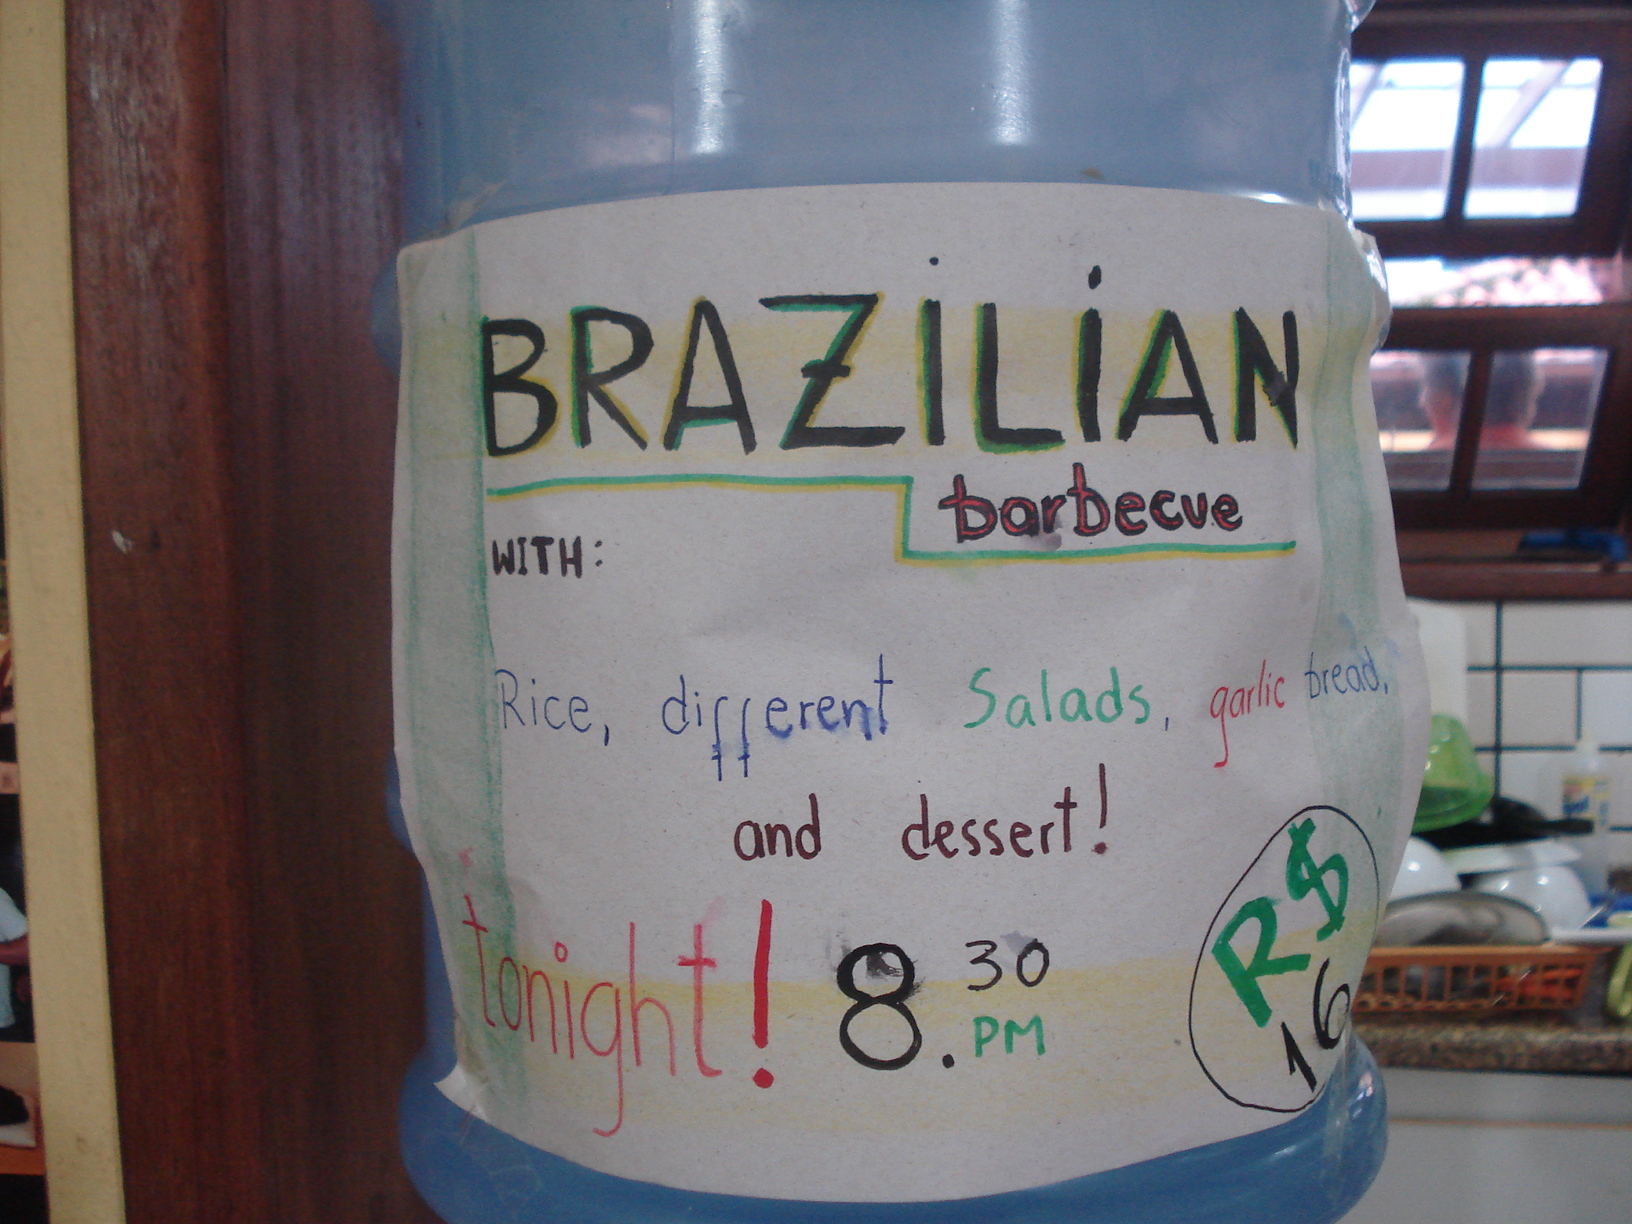 BRAZiLiAN
barbecue
WITH:
Rice, different Salads, garlic bread,
and dessert!
tonight! 8.30 PM
R$
16